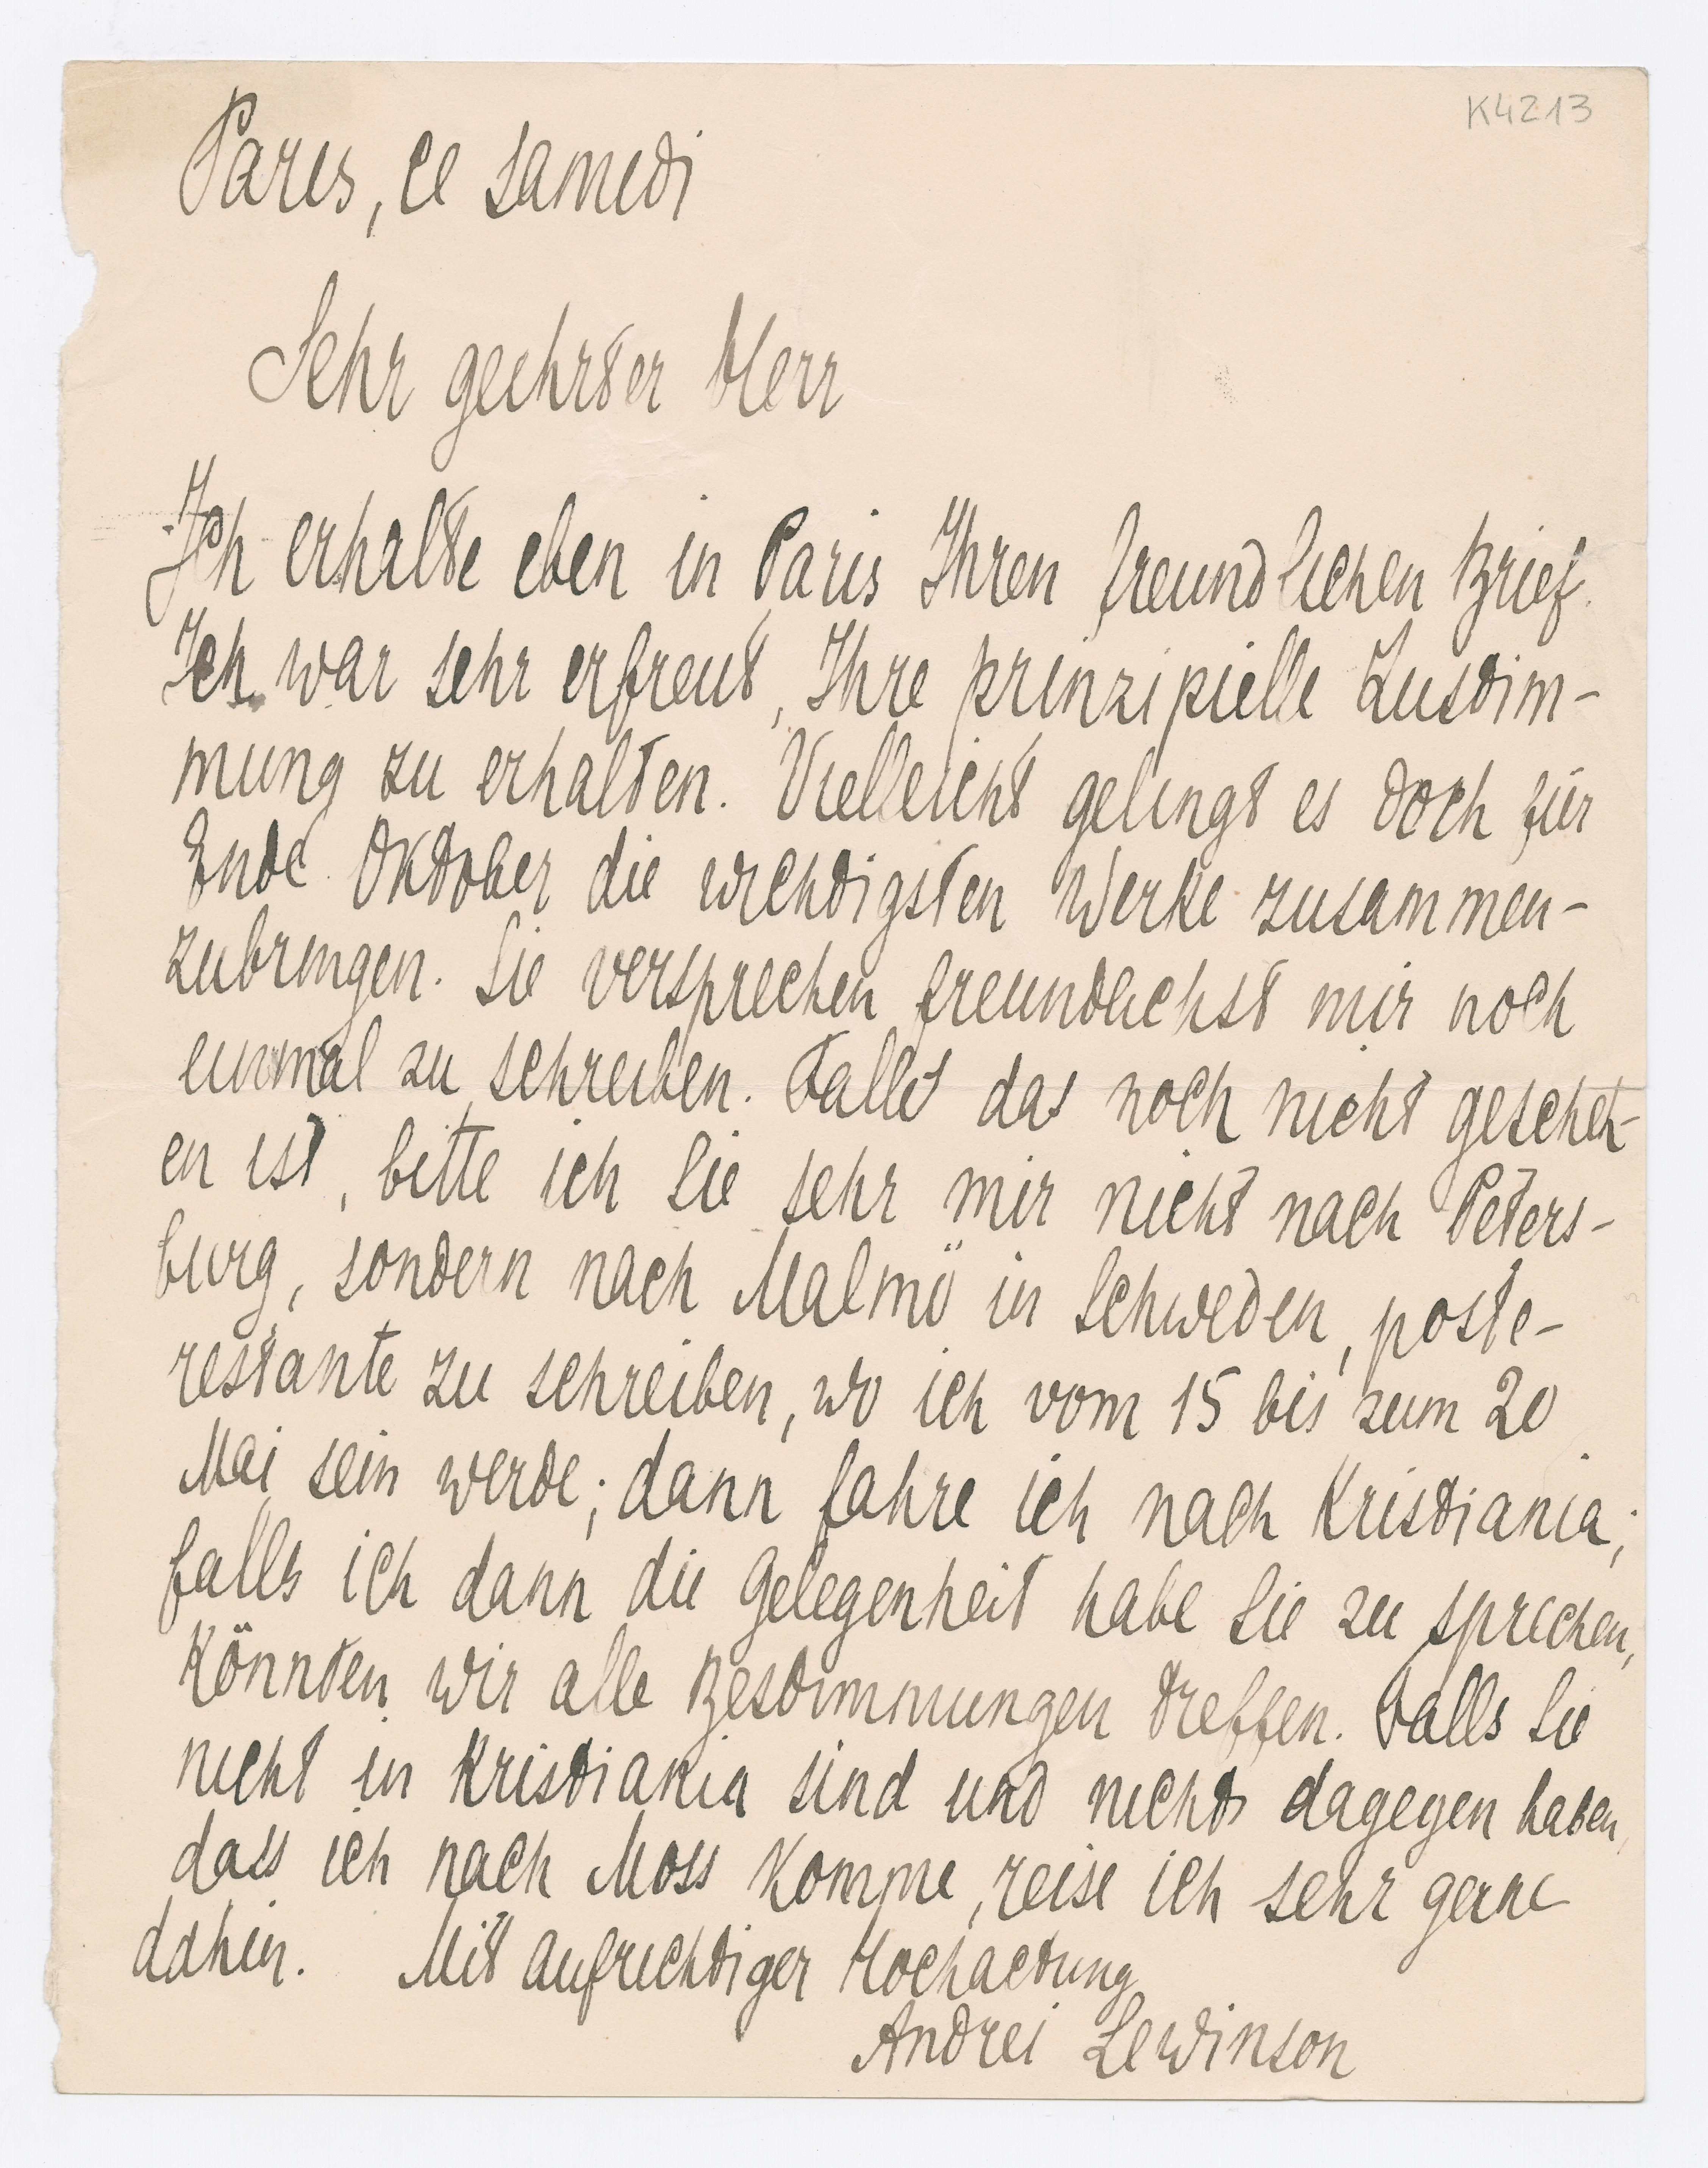 K4213
Paris, ce samedi
Sehr geehrter Herr
Ich erhalte eben in Paris Ihren freundlichen Brief.
Ich war sehr erfreut, Ihre prinzipielle Zustim-
mung zu erhalten. Vielleicht gelingt es doch für
Ende Oktober die wichtigsten Werke zusammen-
zubringen. Sie versprechen freundlichst mir noch
einmal zu schreiben. Falls das noch nicht gescheh-
en ist, bitte ich Sie sehr mir nicht nach Peters-
burg, sondern nach Malmö in Schweden, poste-
restante zu schreiben, wo ich vom 15 bis zum 20
Mai sein werde; dann fahre ich nach Kristiania;
falls ich dann die Gelegenheit habe Sie zu sprechen,
könnten wir alle Bestimmungen treffen. Falls Sie
nicht in Kristiania sind und nichts dagegen haben,
dass ich nach Moss komme, reise ich sehr gerne
dahin. Mit aufrichtiger Hochactung
Andrei Lewinson